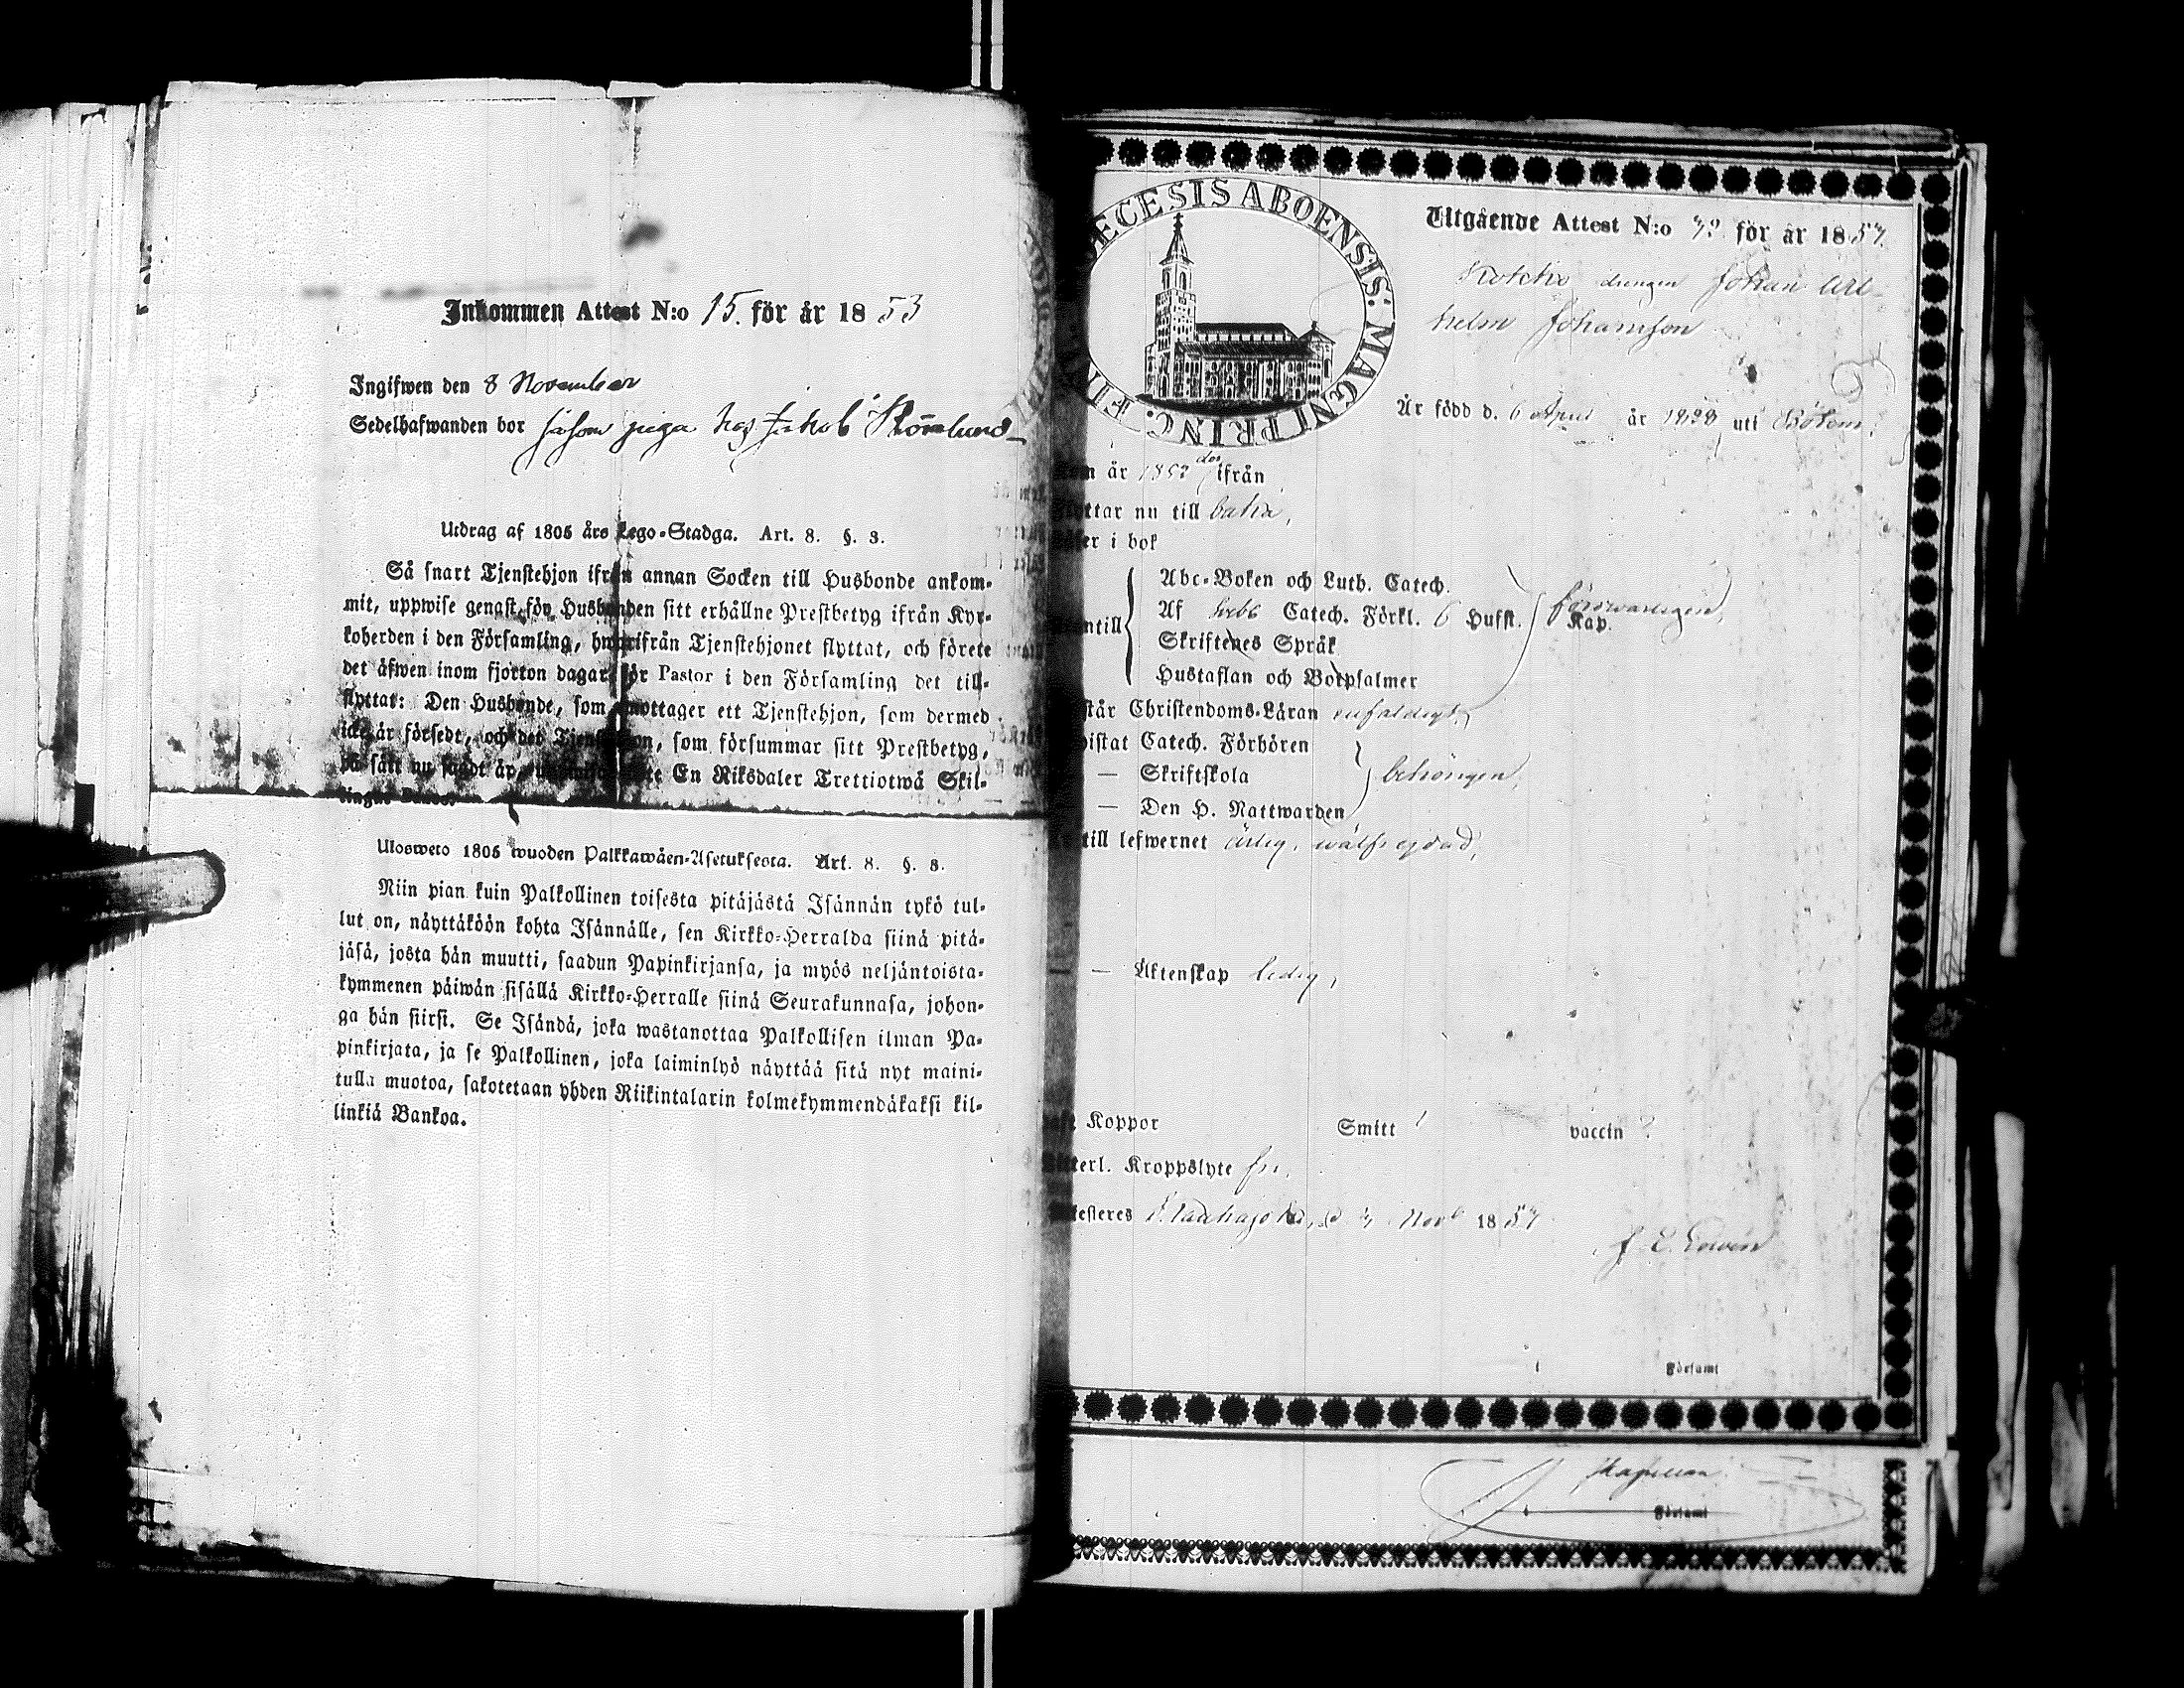 Inkommen Attest N:o 15. för år 1853
Ingifwen den 8 November
Sedelhafwanden bor såsom piga hos Jakob
Utdrag af 1805 års Lego-Stadga. Art. 8. §. 3.
Så snart Tjenstehjon ifrån annan Socken till Husbonde ankom-
mit, uppwise genast för Husbonden sitt erhållne Prestbetyg ifrån Kyr-
koherden i den Församling, hwarifrån Tjenstehjonet flyttat, och förete
det äfwen inom fjorton dagar för Pastor i den Församling det till-
flyttat: Den Husbonde, som emottager ett Tjenstehjon, som dermed
icke är försedt, och det Tjenstehjon, som försummar sitt Prestbetyg,
på sätt nu sagdt är, böte En Riksdaler Trettiotwå Skil-
lingar Banco.
Ulosweto 1805 wuoden Palkkawäen-Asetuksesta. Art. 8. §. 3.
Niin pian kuin Palkollinen toisesta pitäjästä Isännän tykö tul-
lut on, näyttäköön kohta Isännälle, sen Kirkko-Herralda siinä pitä-
jäsä, josta hän muutti, saadun Papinkirjansa, ja myös neljäntoista-
kymmenen päiwän sisällä Kirkko-Herralle siinä Seurakunnasa, johon-
ga hän siirsi. Se Isändä, joka wastanottaa Palkollisen ilman Pa-
pinkirjata, ja se Palkollinen, joka laiminlyö näyttää sitä nyt maini-
tulla muotoa, sakotetaan yhden Riikintalarin kolmekymmendäkaksi kil-
linkiä Bankoa.
ECESIS ABOENSIS: MAGNI PRINC. FIN
Utgående Attest N:o för år 1857.
drengen Johan Wil-
helm Johansson
Är född d. 6 April år 1838 uti
år 1857 ifrån
flyttar nu till
i bok
Abc-Boken och Luth. Catech.
Af Catech. Förkl. 6 Hufst. Kap. försvarligen,
Skriftenes Språk
Hustaflan och Botpsalmer
står Christendoms-Läran enfaldigt,
bistat Catech. Förhören
— Skriftskola behörigen,
— Den H. Nattwarden
till lefwernet ärlig, wälfrejdad,
— — Äktenskap ledig,
Koppor Smitt vaccin
Kroppslyte fri,
d. Nov 1857
Församl
Kapellan
Församl